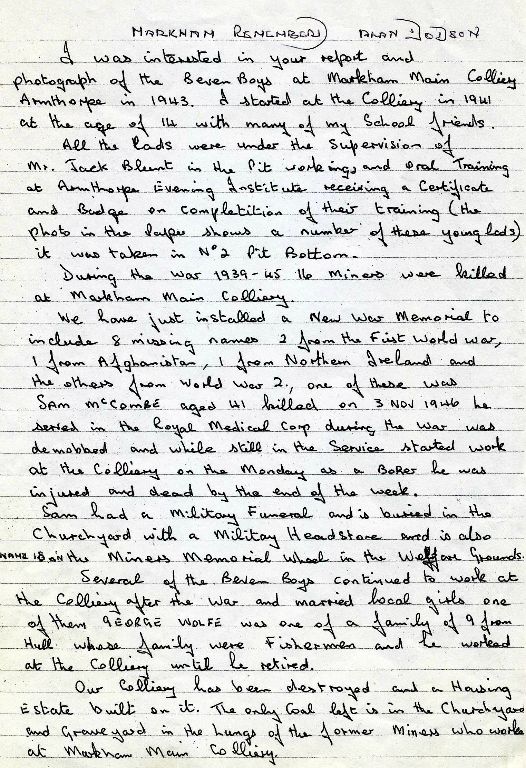 MARKHAM REMEMBER ALAN DODSON
I was interested in your report and
photograph of the Beven Boys at Markham Main Colliery
Armthorpe in 1943. I started at the Colliery in 1941
at the age of 14 with many of my School friends.
All the lads were under the Supervision of
Mr. Jack Blunt in the Pit workings and oral Training
at Armthorpe Evening Institute receiving a Certificate
and Badge on completition of their training (the
photo in the paper shows a number of these young lads)
it was taken in No 2 Pit Bottom.
During the War 1939-45 16 Miners were killed
at Markham Main Colliery.
We have just installed a New War Memorial to
include 8 missing names 2 from the First World War,
1 from Afghanistan, 1 from Northern Ireland and
the others from World War 2., one of these was
SAM McCOMBE aged 41 killed on 3 NOV 1946 he
served in the Royal Medical Corp during the War was
demobbed and while still in the Service started work
at the Colliery on the Monday as a BORER he was
injured and dead by the end of the week.
Sam had a Military Funeral and is buried in the
Churchyard with a Military Headstone and is also
NAME IS ON the Miners Memorial wheel in the Welfare Grounds.
Several of the Beven Boys continued to work at
the Colliery after the War and married local girls one
of them GEORGE WOLFE was one of a family of 9 from
Hull whose family were Fishermen and he worked
at the Colliery until he retired.
Our Colliery has been destroyed and a Housing
Estate built on it. The only Coal left is in the Churchyard
and Graveyard in the lungs of the former Miners who worked
at Markham Main Colliery.